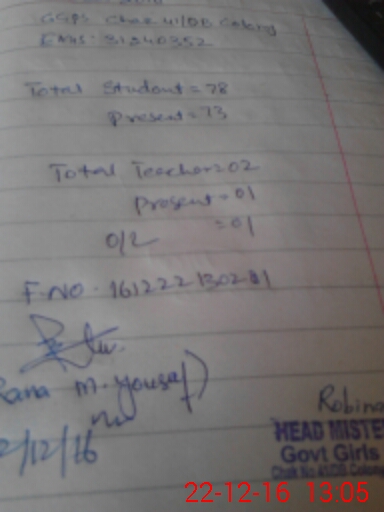 GGPS Chak 41/DB Colony
EMIS: 31340352
Total Student = 78
Present = 73
Total Teacher = 02
Present = 01
O/L = 01
F.NO. 161222130201
Rana M. Yousaf)
2/12/16
Robina
HEAD MISTE
Govt Girls
Chak No.41/DB Colony
22-12-16 13.05